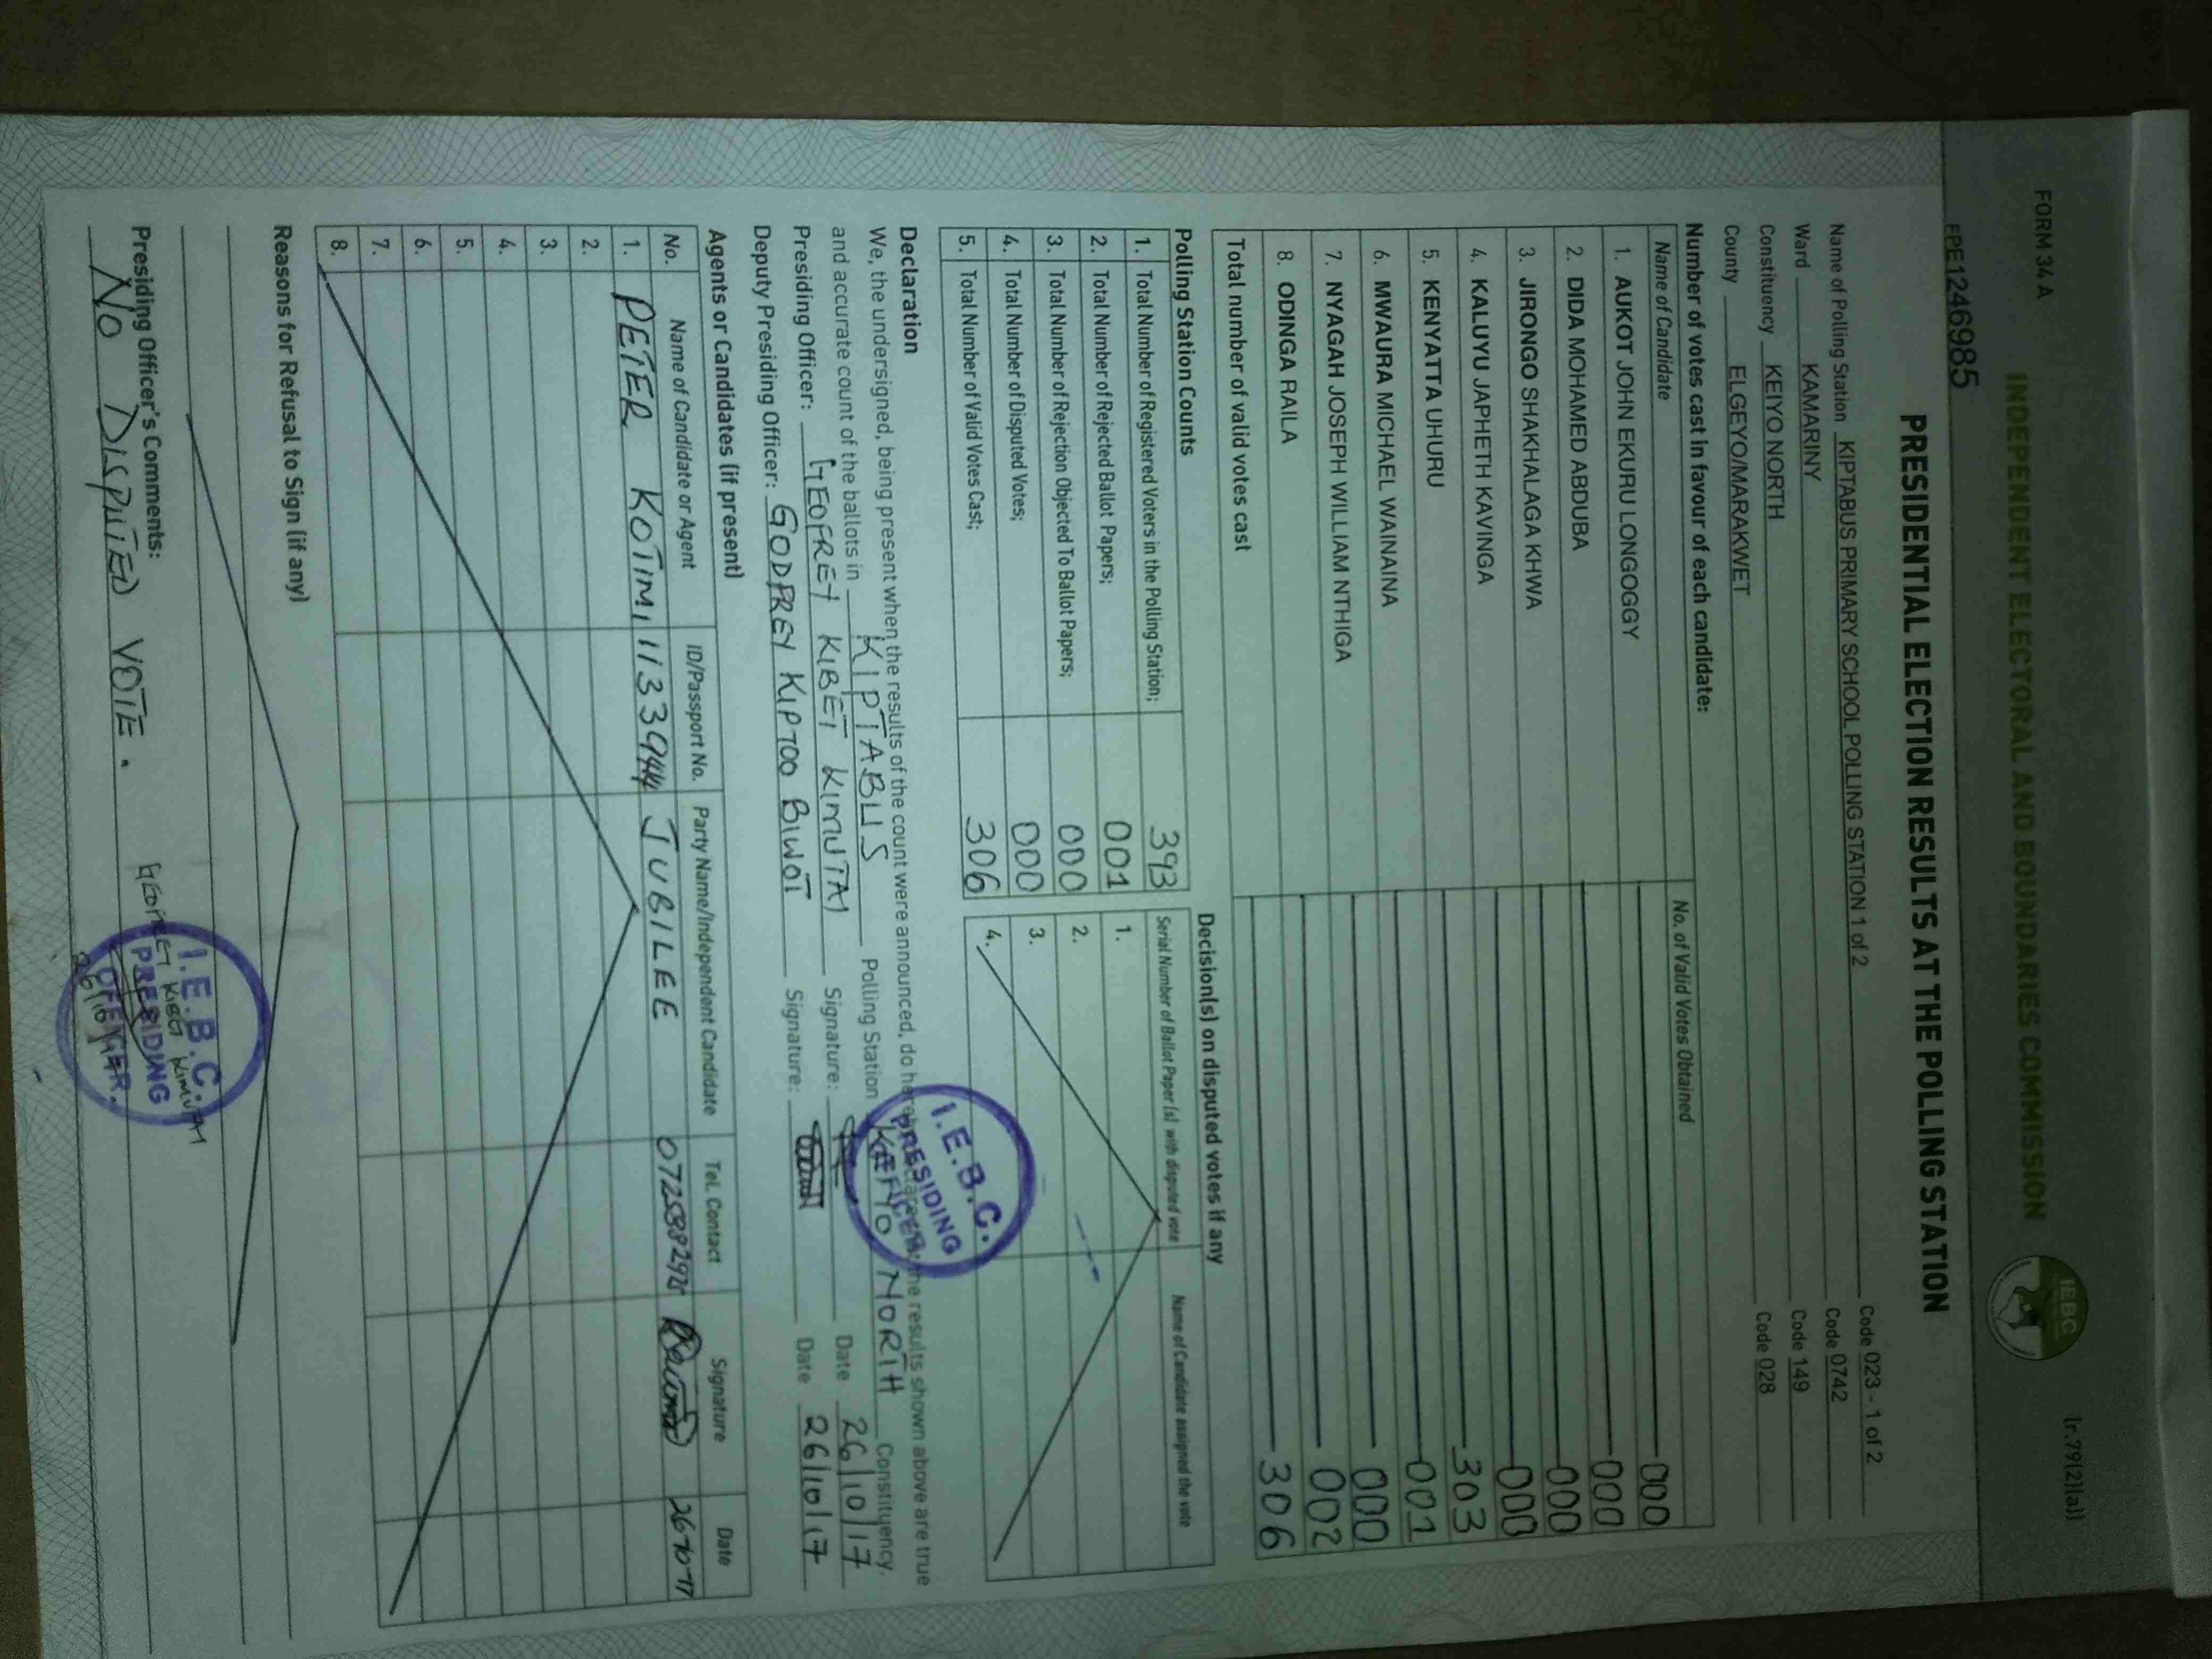 FORM 34 A
(r.79(2)(a))
INDEPENDENT ELECTORAL AND BOUNDARIES COMMISSION
IEBC
PRESIDENTIAL ELECTION RESULTS AT THE POLLING STATION
Name of Polling Station KIPTABUS PRIMARY SCHOOL POLLING STATION 1 of 2 Code 023 - 1 of 2
Ward KAMARINY Code 0742
Constituency KEIYO NORTH Code 149
County ELGEYO/MARAKWET Code 028
Number of votes cast in favour of each candidate:
Name of Candidate No. of Valid Votes Obtained
1. AUKOT JOHN EKURU LONGOGGY 000
2. DIDA MOHAMED ABDUBA 000
3. JIRONGO SHAKHALAGA KHWA 000
4. KALUYU JAPHETH KAVINGA 000
5. KENYATTA UHURU 303
6. MWAURA MICHAEL WAINAINA 001
7. NYAGAH JOSEPH WILLIAM NTHIGA 000
8. ODINGA RAILA 002
Total number of valid votes cast 306
Polling Station Counts
1. Total Number of Registered Voters in the Polling Station; 393
2. Total Number of Rejected Ballot Papers; 001
3. Total Number of Rejection Objected To Ballot Papers; 000
4. Total Number of Disputed Votes; 000
5. Total Number of Valid Votes Cast; 306
Decision(s) on disputed votes if any
Serial Number of Ballot Paper (s) with disputed vote Name of Candidate assigned the vote
1.
2.
3.
4.
Declaration
We, the undersigned, being present when the results of the count were announced, do hereby declare that the results shown above are true
and accurate count of the ballots in KIPTABUS Polling Station KEIYO NORTH Constituency.
Presiding Officer: GEOFREY KIBET KIMUTAI Signature: Date 26/10/17
Deputy Presiding Officer: GODFREY KIPTOO BIWOT Signature: Date 26/10/17
I.E.B.C.
PRESIDING
OFFICER
Agents or Candidates (if present)
No. Name of Candidate or Agent ID/Passport No. Party Name/Independent Candidate Tel. Contact Signature Date
1. PETER KOTIM JUBILEE 26-10-17
2.
3.
4.
5.
6.
7.
8.
Reasons for Refusal to Sign (if any)
Presiding Officer's Comments:
NO DISPUTED VOTE.
I.E.B.C.
KIBET KIMUTAI
PRESIDING
OFFICER.
26/10